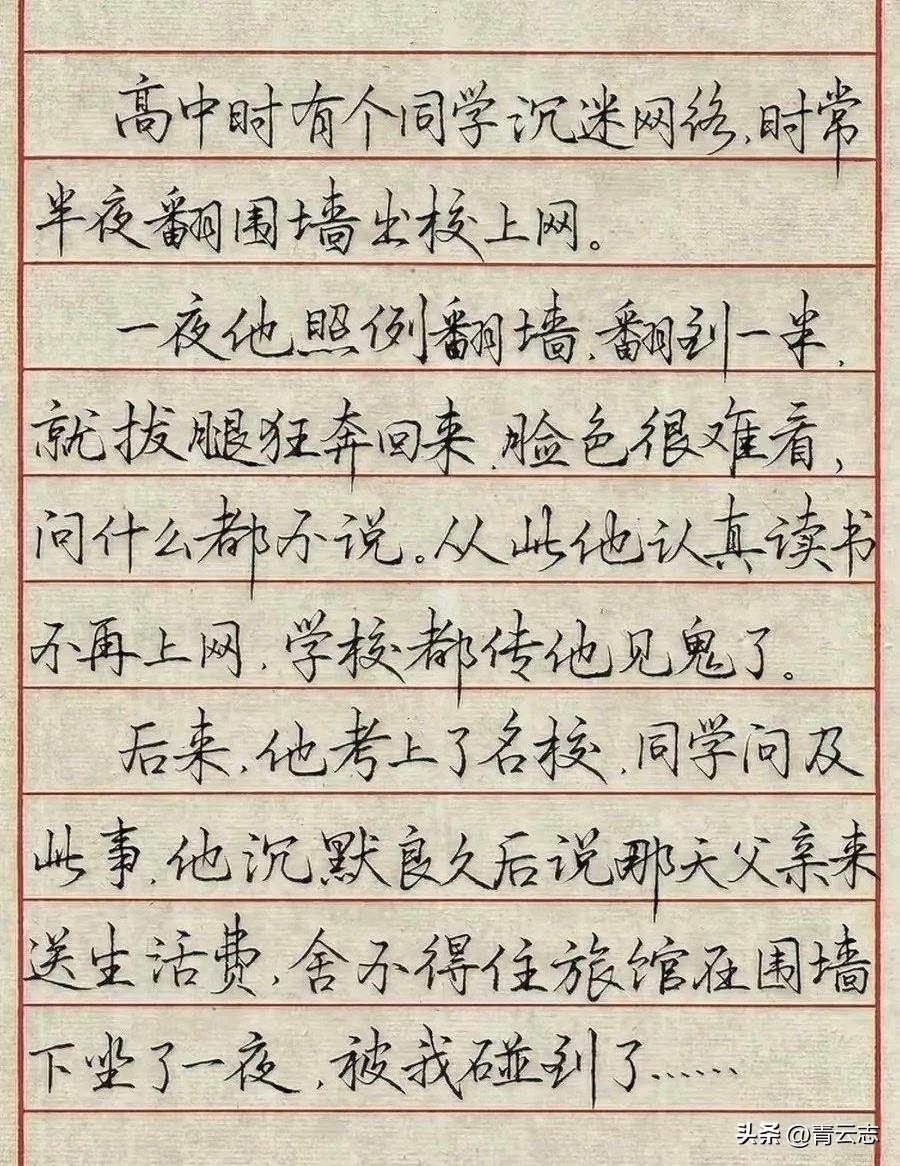 高中时有个同学沉迷网络,时常
半夜翻围墙出校上网。
一夜他照例翻墙,翻到一半,
就拔腿狂奔回来,脸色很难看,
问什么都不说。从此他认真读书
不再上网,学校都传他见鬼了。
后来,他考上了名校,同学问及
此事,他沉默良久后说那天父亲来
送生活费,舍不得住旅馆在围墙
下坐了一夜,被我碰到了……
头条 @青云志